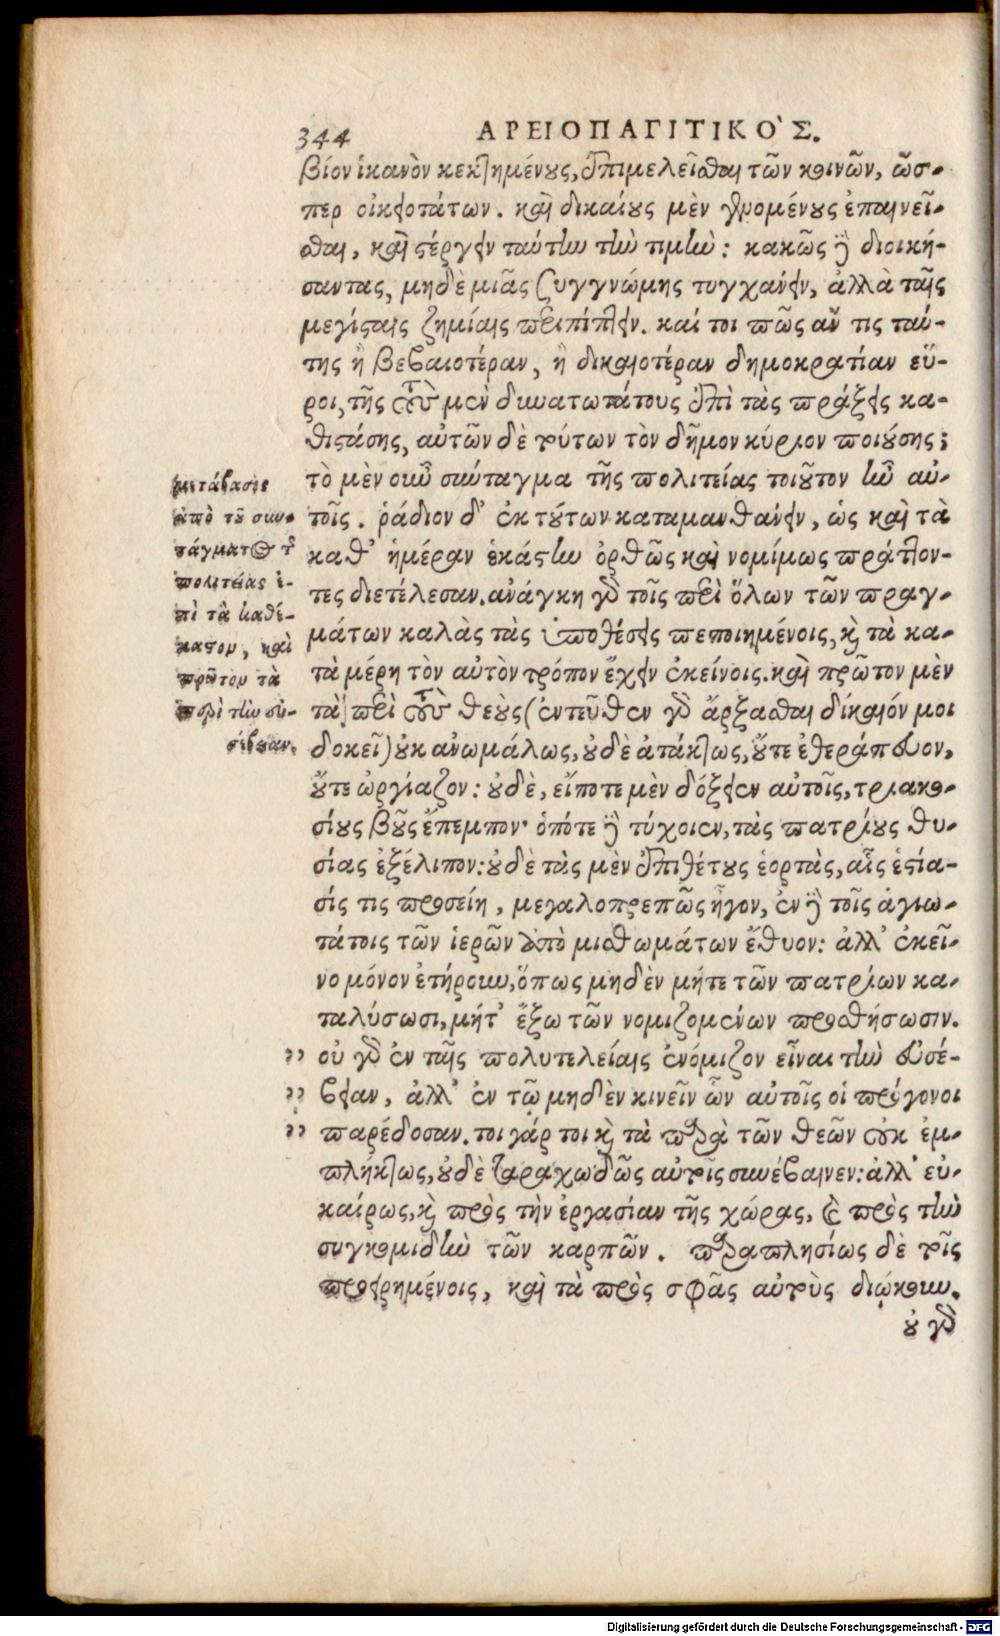 344 ΑΡΕΙΟΠΑΓΙΤΙΚΟ`Σ.
βίον ἱκανὸν κεκτημένους, ἐπιμελεῖσθαι τῶν κοινῶν, ὥσ-
περ οἰκειοτάτων. καὶ δικαίους μὲν γενομένους ἐπαινεῖ-
σθαι, καὶ στέργειν ταύτην τὴν τιμήν: κακῶς δὲ διοικήσ-
σαντας, μηδὲ μιᾶς συγγνώμης τυγχάνειν, ἀλλὰ ταῖς
μεγίσταις ζημίαις περιπίπτειν. καί τοι πῶς ἄν τις ταύ-
της ἢ βεβαιοτέραν, ἢ δικαιοτέραν δημοκρατίαν εὕ-
ροι, τῆς τοὺς μὲν δυνατωτάτους ἐπὶ τὰς πράξεις κα-
θιστάσης, αὐτῶν δὲ τούτων τὸν δῆμον κύριον ποιούσης;
τὸ μὲν οὖν σύνταγμα τῆς πολιτείας τοιοῦτον ἦν αὐ-
τοῖς. ῥάδιον δ' ἐκ τούτων καταμανθάνειν, ὡς καὶ τὰ
καθ' ἡμέραν ἑκάστην ὀρθῶς καὶ νομίμως πράττον-
τες διετέλεσαν. ἀνάγκη γὰρ τοῖς περὶ ὅλων τῶν πραγ-
μάτων καλὰς τὰς ὑποθέσεις πεποιημένοις, καὶ τὰ κα-
τὰ μέρη τὸν αὐτὸν τρόπον ἔχειν ἐκείνοις. καὶ πρῶτον μὲν
τὰ περὶ τοὺς θεοὺς (ἐντεῦθεν γὰρ ἄρξασθαι δίκαιόν μοι
δοκεῖ) οὐκ ἀνωμάλως, οὐδὲ ἀτάκτως, οὔτε ἐθεράπευον,
οὔτε ὠργίαζον: οὐδὲ, εἴποτε μὲν δόξειεν αὐτοῖς, τριακο-
σίους βοῦς ἔπεμπον· ὁπότε δὲ τύχοιεν, τὰς πατρίους θυ-
σίας ἐξέλιπον: οὐδὲ τὰς μὲν ἐπιθέτους ἑορτὰς, αἷς ἑστία-
σίς τις προσείη, μεγαλοπρεπῶς ἦγον, ἐν δὲ τοῖς ἁγιω-
τάτοις τῶν ἱερῶν ἀπὸ μισθωμάτων ἔθυον: ἀλλ' ἐκεῖ-
νο μόνον ἐτήρουν, ὅπως μηδὲν μήτε τῶν πατρίων κα-
ταλύσωσι, μήτ' ἔξω τῶν νομιζομένων προσθήσωσιν.
„ οὐ γὰρ ἐν ταῖς πολυτελείαις ἐνόμιζον εἶναι τὴν εὐσέ-
„ βειαν, ἀλλ' ἐν τῷ μηδὲν κινεῖν ὧν αὐτοῖς οἱ πρόγονοι
„ παρέδοσαν. τοι γάρ τοι καὶ τὰ παρὰ τῶν θεῶν οὐκ ἐμ-
πλήκτως, οὐδὲ ταραχωδῶς αὐτοῖς συνέβαινεν: ἀλλ' εὐ-
καίρως, καὶ πρὸς τὴν ἐργασίαν τῆς χώρας, καὶ πρὸς τὴν
συγκομιδὴν τῶν καρπῶν. παραπλησίως δὲ τοῖς
προειρημένοις, καὶ τὰ πρὸς σφᾶς αὐτοὺς διῴκουν.
οὐ γὰρ
μετάβασις
ἀπὸ τοῦ συν-
τάγματος τῆς
πολιτείας ἐ-
πὶ τὰ καθέ-
καστον, καὶ
πρῶτον τὰ
περὶ τὴν εὐ-
σέβειαν.
Digitalisierung gefördert durch die Deutsche Forschungsgemeinschaft - DFG